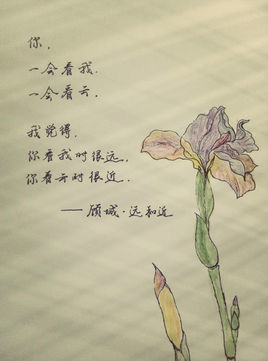 你,
一会看我.
一会看云.
我觉得,
你看我时很远,
你看云时很近.
——顾城·远和近